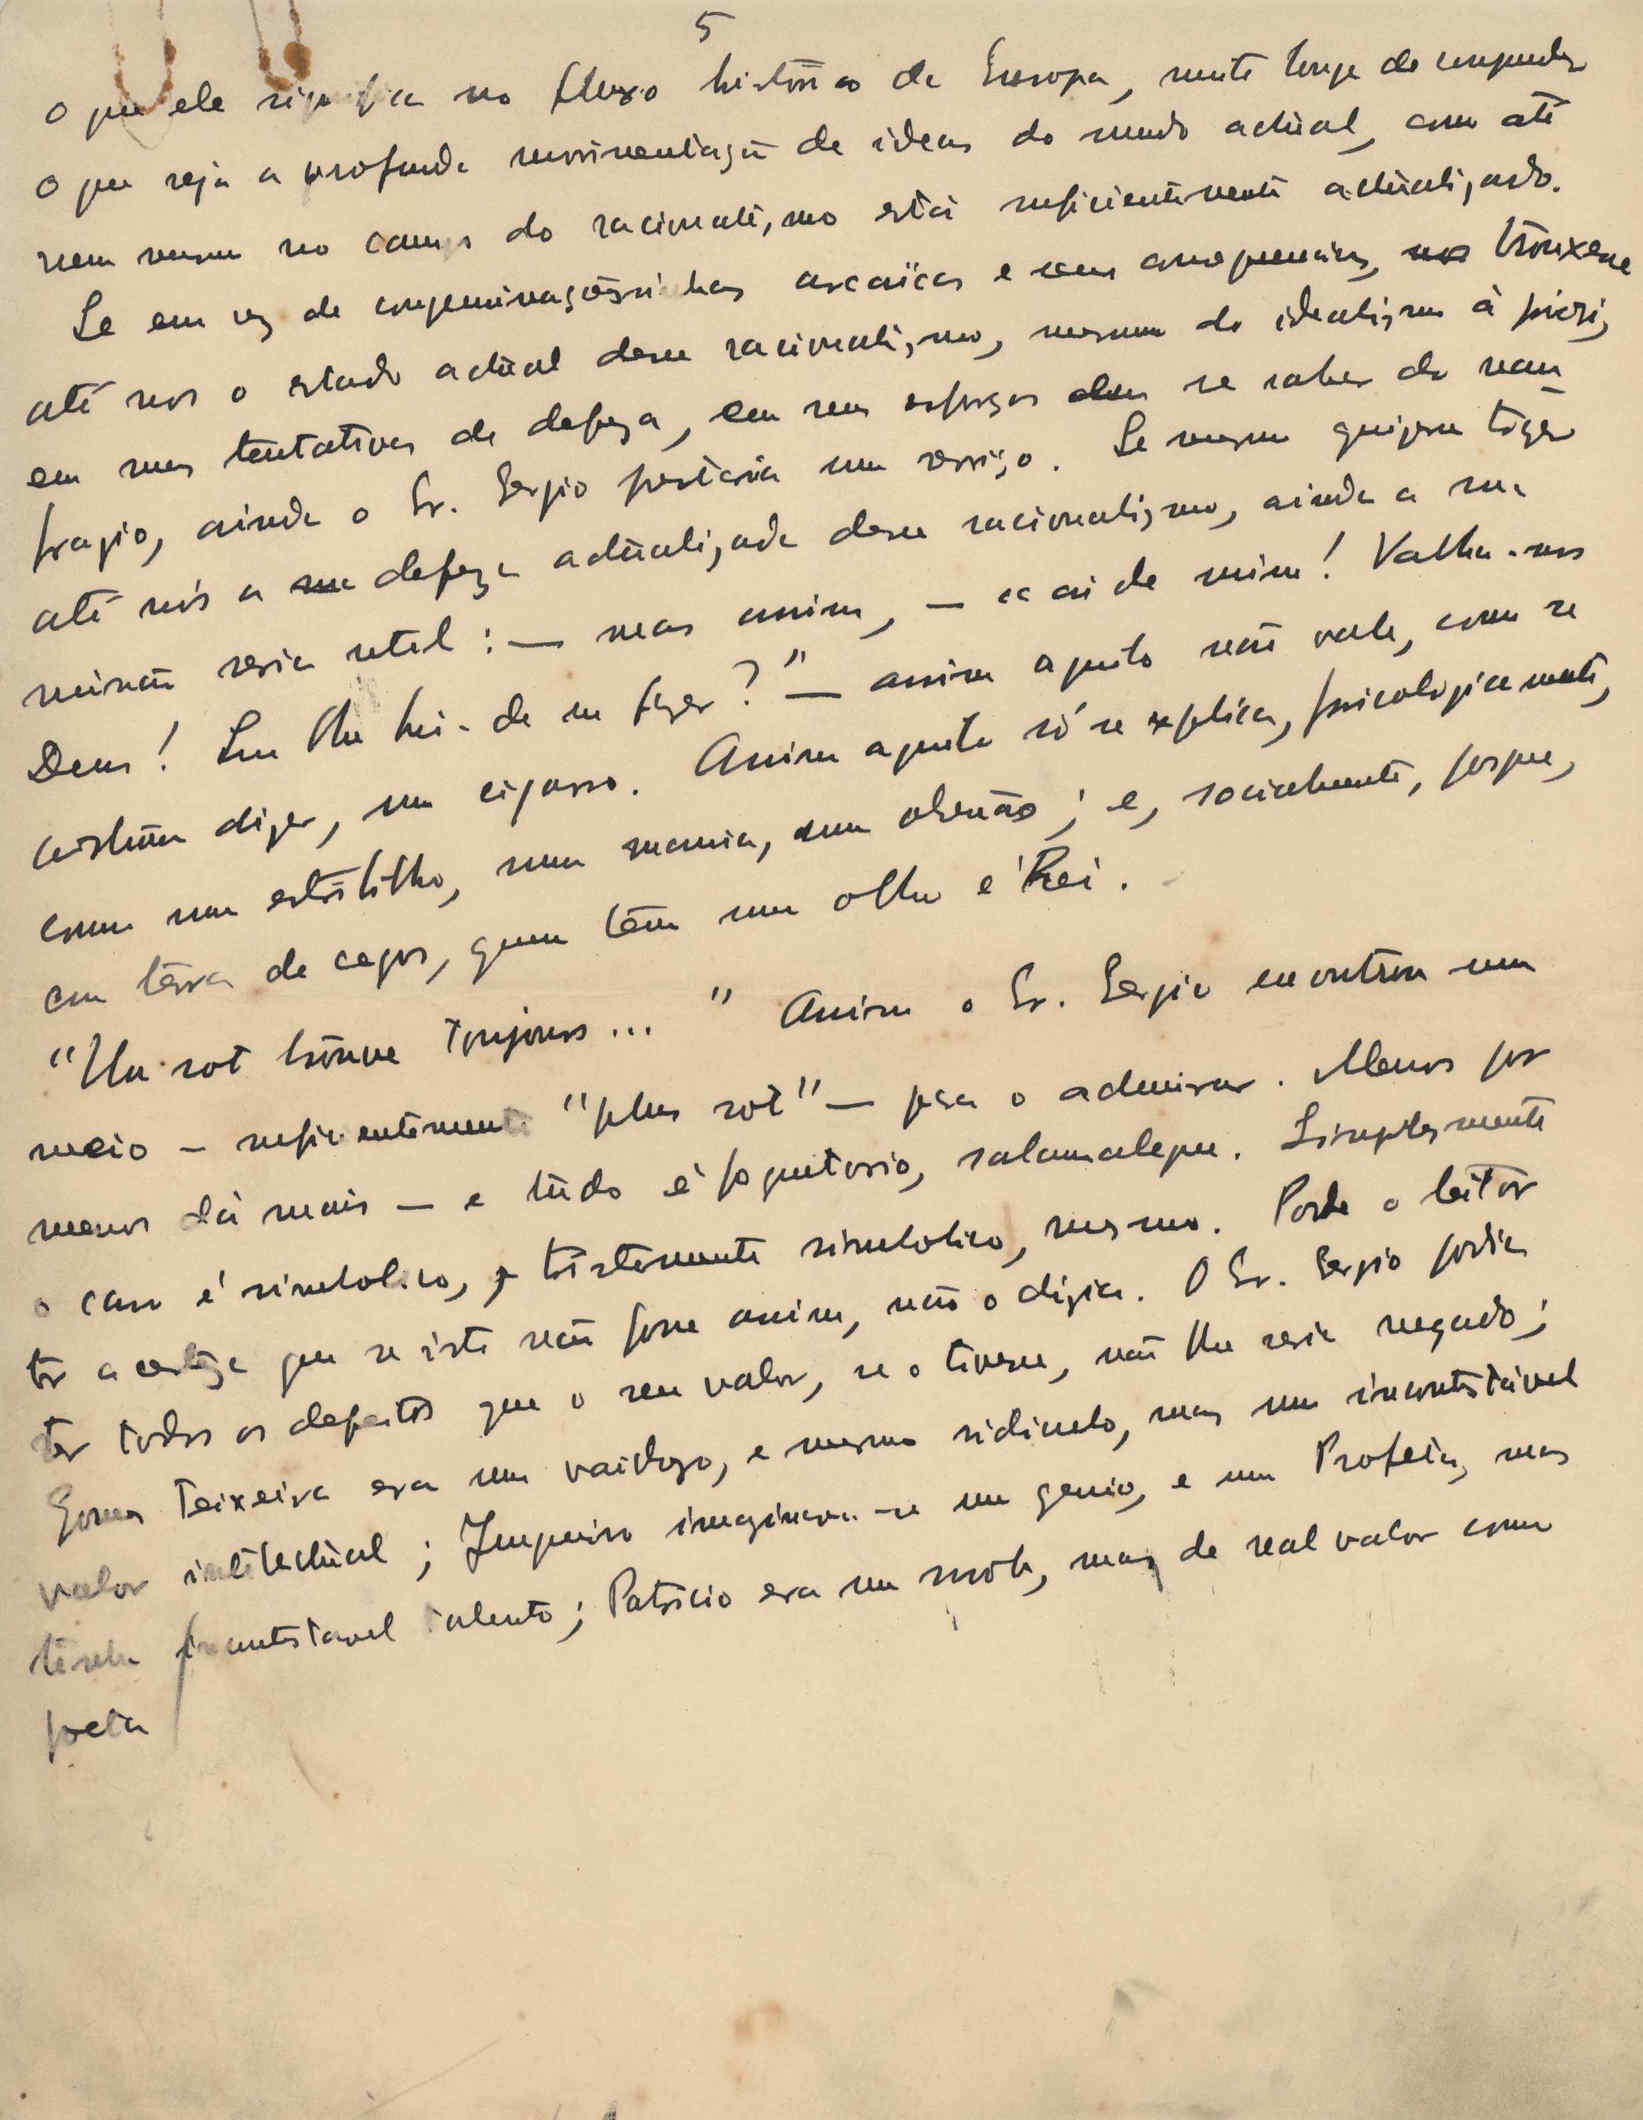 5
o que ele significa no fluxo historico da Europa, muito longe de compreender
o que seja a profunda movimentação de ideas do mundo actual, como até
nem mesmo no campo do racionalismo está suficientemente actualizado.
Se em vez de congeminaçõesinhas arcaïcas e sem consequencias, nos trouxesse
até nos o estado actual desse racionalismo, mesmo do idealismo à priori,
em suas tentativas de defeza, em seus esforços de se salvar do nau-
fragio, ainda o Sr. Sergio prestaria um serviço. Se mesmo quizesse trazer
até nós a defeza actualizada desse racionalismo, ainda a sua
missão seria util: — mas assim, — "ai de mim! Valha-nos
Deus! Que lhe hei-de eu fazer?" — assim aquilo não vale, como se
costuma dizer, um cigarro. Assim aquilo só se explica, psicologicamente,
como um estribilho, uma mania, uma obsessão; e, socialmente, porque,
em terra de cegos, quem têm um olho é Rei.
"Un sot trouve toujours..." Assim o Sr. Sergio encontrou um
meio — suficientemente "plus sot" — para o admirar. Menos por
menos dá mais — e tudo é foguetorio, salamaleque. Simplesmente
o caso é simbolico, tristemente simbolico, mesmo. Pode o leitor
ter a certeza que se isto não fosse assim, não o dizia. O Sr. Sergio podia
ter todos os defeitos que o seu valor, se o tivesse, não lhe seria negado;
Gomes Teixeira era um vaidoso, e mesmo ridiculo, mas um incontestável
valor intelectual; Junqueiro imaginava-se um genio, e um Profeta, mas
tinha incontestavel talento; Patricio era um snob, mas de real valor como
poeta